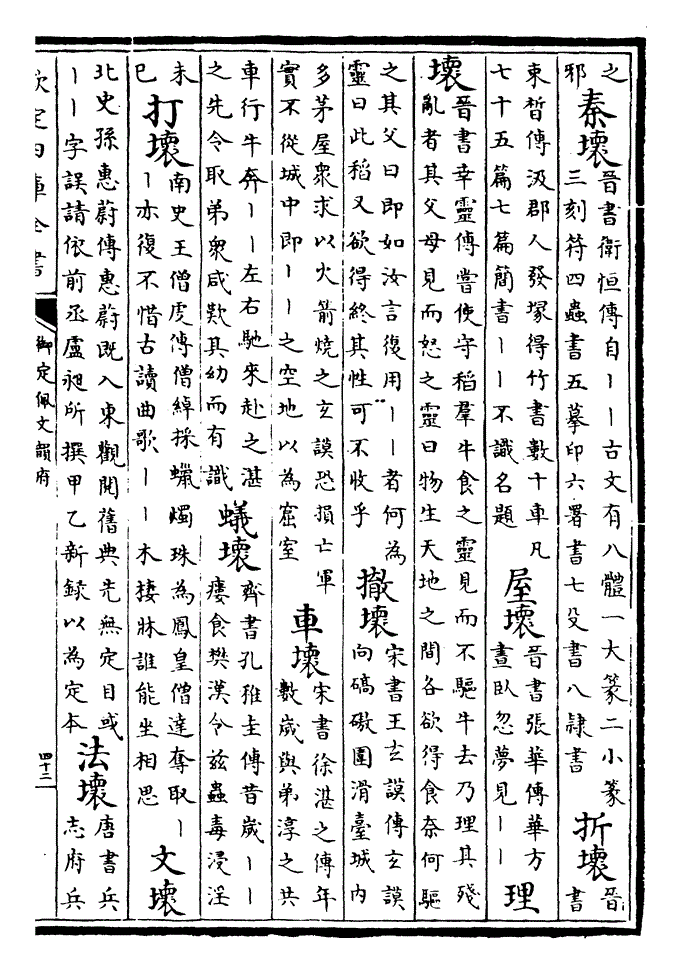 之
邪
秦壞
晉書衛恒傳自丨丨古文有八體一大篆二小篆
三刻符四蟲書五摹印六署書七殳書八隸書
折壞
晉
書
束晳傳汲郡人發塚得竹書數十車凡
七十五篇七篇簡書丨丨不識名題
屋壞
晉書張華傳華方
晝臥忽夢見丨丨
理
壞
晉書幸靈傳嘗使守稻羣牛食之靈見而不驅牛去乃理其殘
亂者其父母見而怒之靈曰物生天地之間各欲得食奈何驅
之其父曰即如汝言復用丨丨者何為
靈曰此稻又欲得終其性可不收乎
撤壞
宋書王玄謨傳玄謨
向碻磝圍滑臺城内
多茅屋衆求以火箭燒之玄謨恐損亡軍
實不從城中即丨丨之空地以為窟室
車壞
宋書徐湛之傳年
數歲與弟淳之共
車行牛奔丨丨左右馳來赴之湛
之先令取弟衆咸歎其幼而有識
蟻壞
齊書孔稚圭傳昔歲丨丨
瘻食樊漢今兹蟲毒浸淫
未
已
打壞
南史王僧虔傳僧綽採蠟燭珠為鳳皇僧達奪取丨
丨亦復不惜古讀曲歌丨丨木棲牀誰能坐相思
文壞
北史孫惠蔚傳惠蔚既入東觀閱舊典先無定目或
丨丨字誤請依前丞盧昶所撰甲乙新録以為定本
法壞
唐書兵
志府兵
欽定四庫全書
御定佩文韻府
四十二